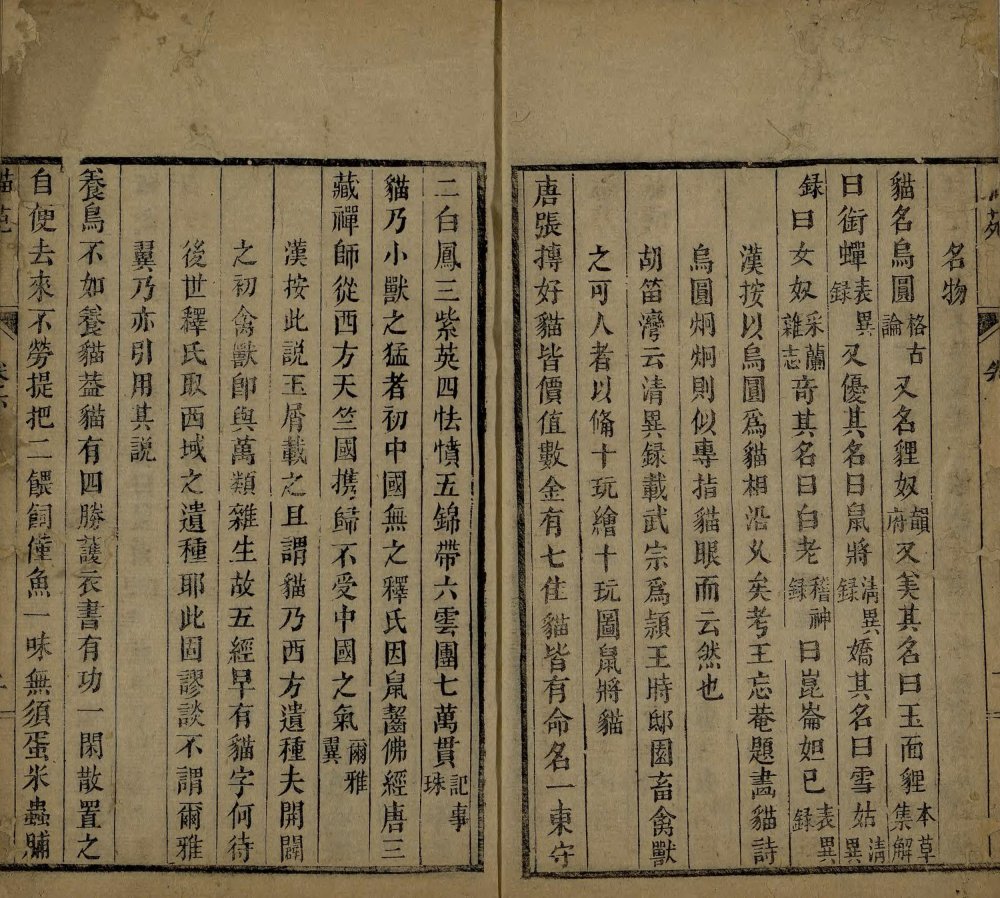 名物
貓名烏圓格古論又名貍奴韻府又美其名曰玉面貍本草集解
曰銜蟬表異録又優其名曰鼠將清異録嬌其名曰雪姑清異
録曰女奴采蘭雜志奇其名曰白老稽神録曰崑崙妲已表異録
漢按以烏圓爲貓相沿乆矣考王忘菴題畫貓詩
烏圓炯炯則似專指貓眼而云然也
胡笛灣云清異録載武宗爲頴王時邸園畜禽獸
之可人者以備十玩繪十玩圖鼠將貓
唐張摶好貓皆價值數金有七佳貓皆有命名一東守
二白鳳三紫英四怯憤五錦帶六雲團七萬貫記事珠
貓乃小獸之猛者初中國無之釋氏因鼠齧佛經唐三
藏禪師從西方天竺國携歸不受中國之氣爾雅翼
漢按此説玉屑載之且謂貓乃西方遺種夫開闢
之初禽獸卽與萬類雜生故五經早有貓字何待
後世釋氏取西域之遺種耶此固謬談不謂爾雅
翼乃亦引用其説
養鳥不如養貓葢貓有四勝護衣書有功一閑散置之
自便去來不勞提把二餵飼僅魚一味無須蛋米蟲脯
貓苑